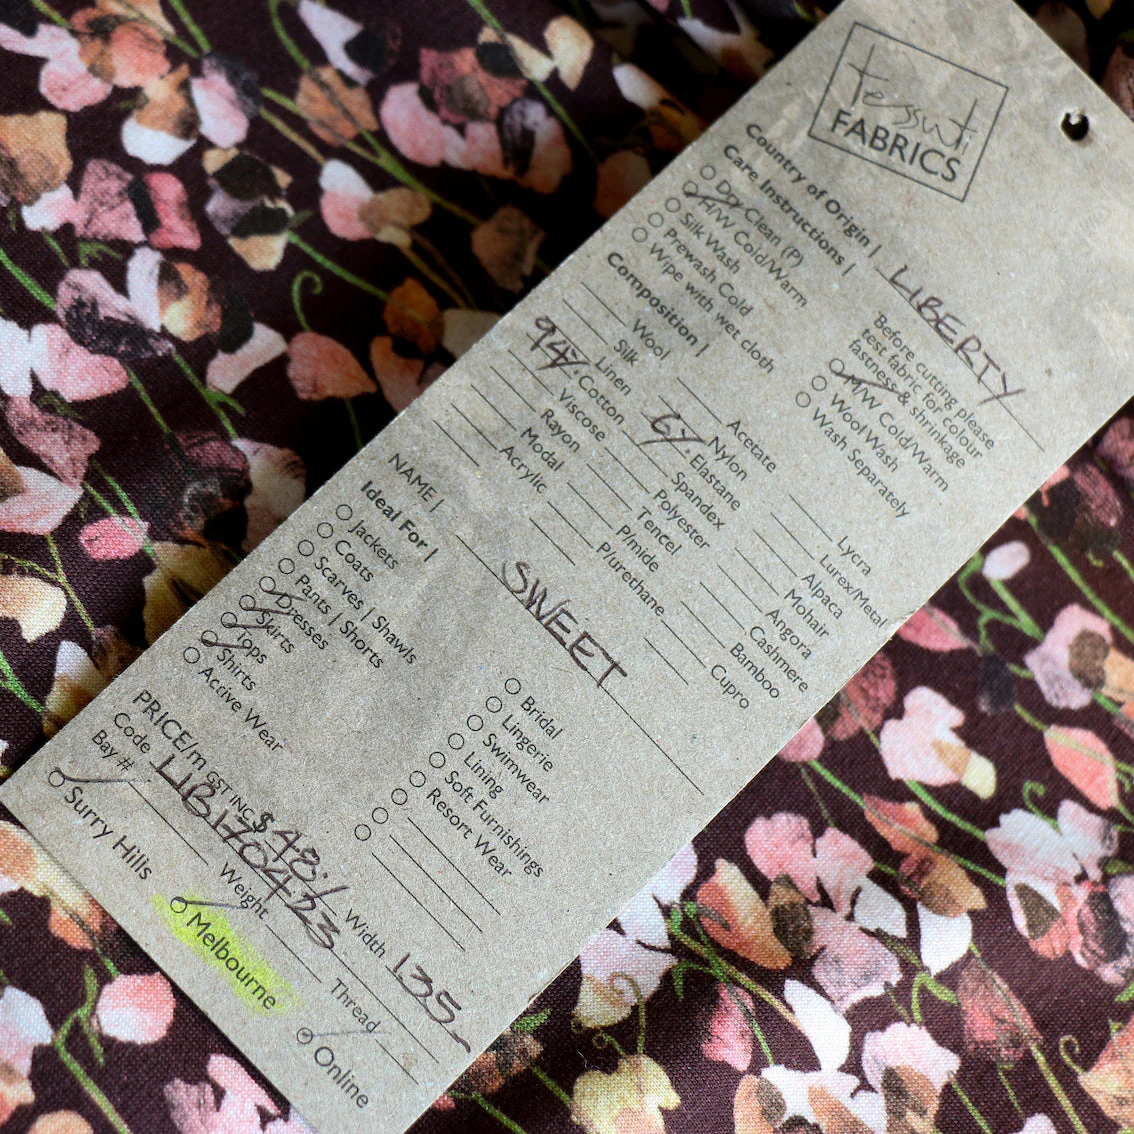 tessuti
FABRICS
Country of Origin | LIBERTY
Care Instructions |
Dry Clean (P)
H/W Cold/Warm
Silk Wash
Prewash Cold
Wipe with wet cloth
Before cutting please
test fabric for colour
fastness & shrinkage
M/W Cold/Warm
Wool Wash
Wash Separately
Composition |
Wool
Silk
Linen
94% Cotton
Viscose
Rayon
Modal
Acrylic
Acetate
Nylon
6% Elastane
Spandex
Polyester
Tencel
P/mide
P/urethane
Lycra
Lurex/Metal
Alpaca
Mohair
Angora
Cashmere
Bamboo
Cupro
NAME | SWEET
Ideal For |
Jackets
Coats
Scarves | Shawls
Pants | Shorts
Dresses
Skirts
Tops
Shirts
Active Wear
Bridal
Lingerie
Swimwear
Lining
Soft Furnishings
Resort Wear
PRICE/m GST INC $ 48.
Code LIB170423 Width 135
Bay # Weight Thread
Surry Hills Melbourne Online